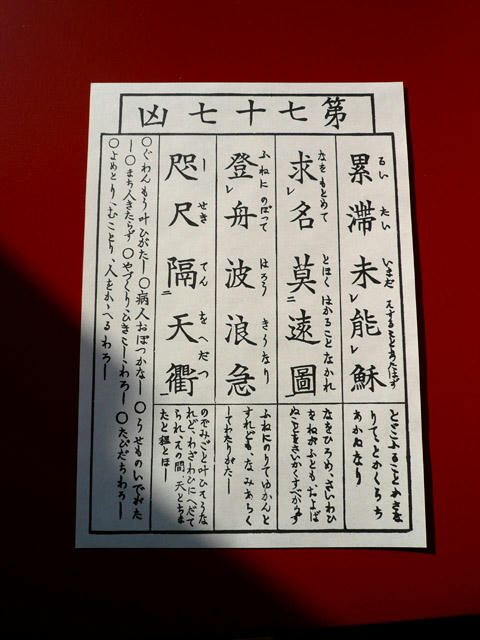 第七十七凶
累滞未能穌
るい たい いまだ
とどこふることかさな
りて、とかくらち
あかぬなり
求名莫遠圖
なをもとめて とほくはかることなかれ
なをひろめ、さいわひ
をねがふともおよば
ぬことをさいかくすべからず
登舟波浪急
ふねにのぼつて はらうきうなり
ふねにのりてゆかんと
すれども、なみあらく
してわたりがたし
咫尺隔天衢
しせきてんをへだつ
のぞみごと叶ひそうな
れど、わざわひにへだて
られ、えの間、天とちま
たと程とほし
〇ぐわんもう叶ひがたし〇病人おぼつかなし〇うせものいでがた
し〇まち人きたらず〇やづくり、ひきこし、わろし〇たびだちわろし
〇よめとり、むことり、人をかゝへるわろし